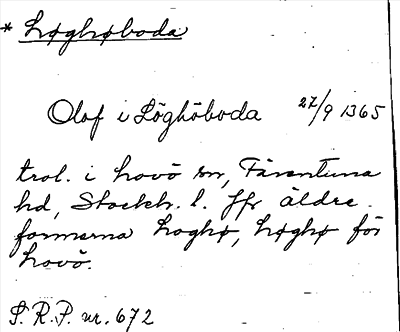 * Løghøboda
Olof i Löghöboda 27/9 1365
trol. i Lovö sn, Färentuna
hd, Stockh. l. Jfr äldre
formerna Loghø, Løghø för
Lovö.
S. R. P. nr. 672